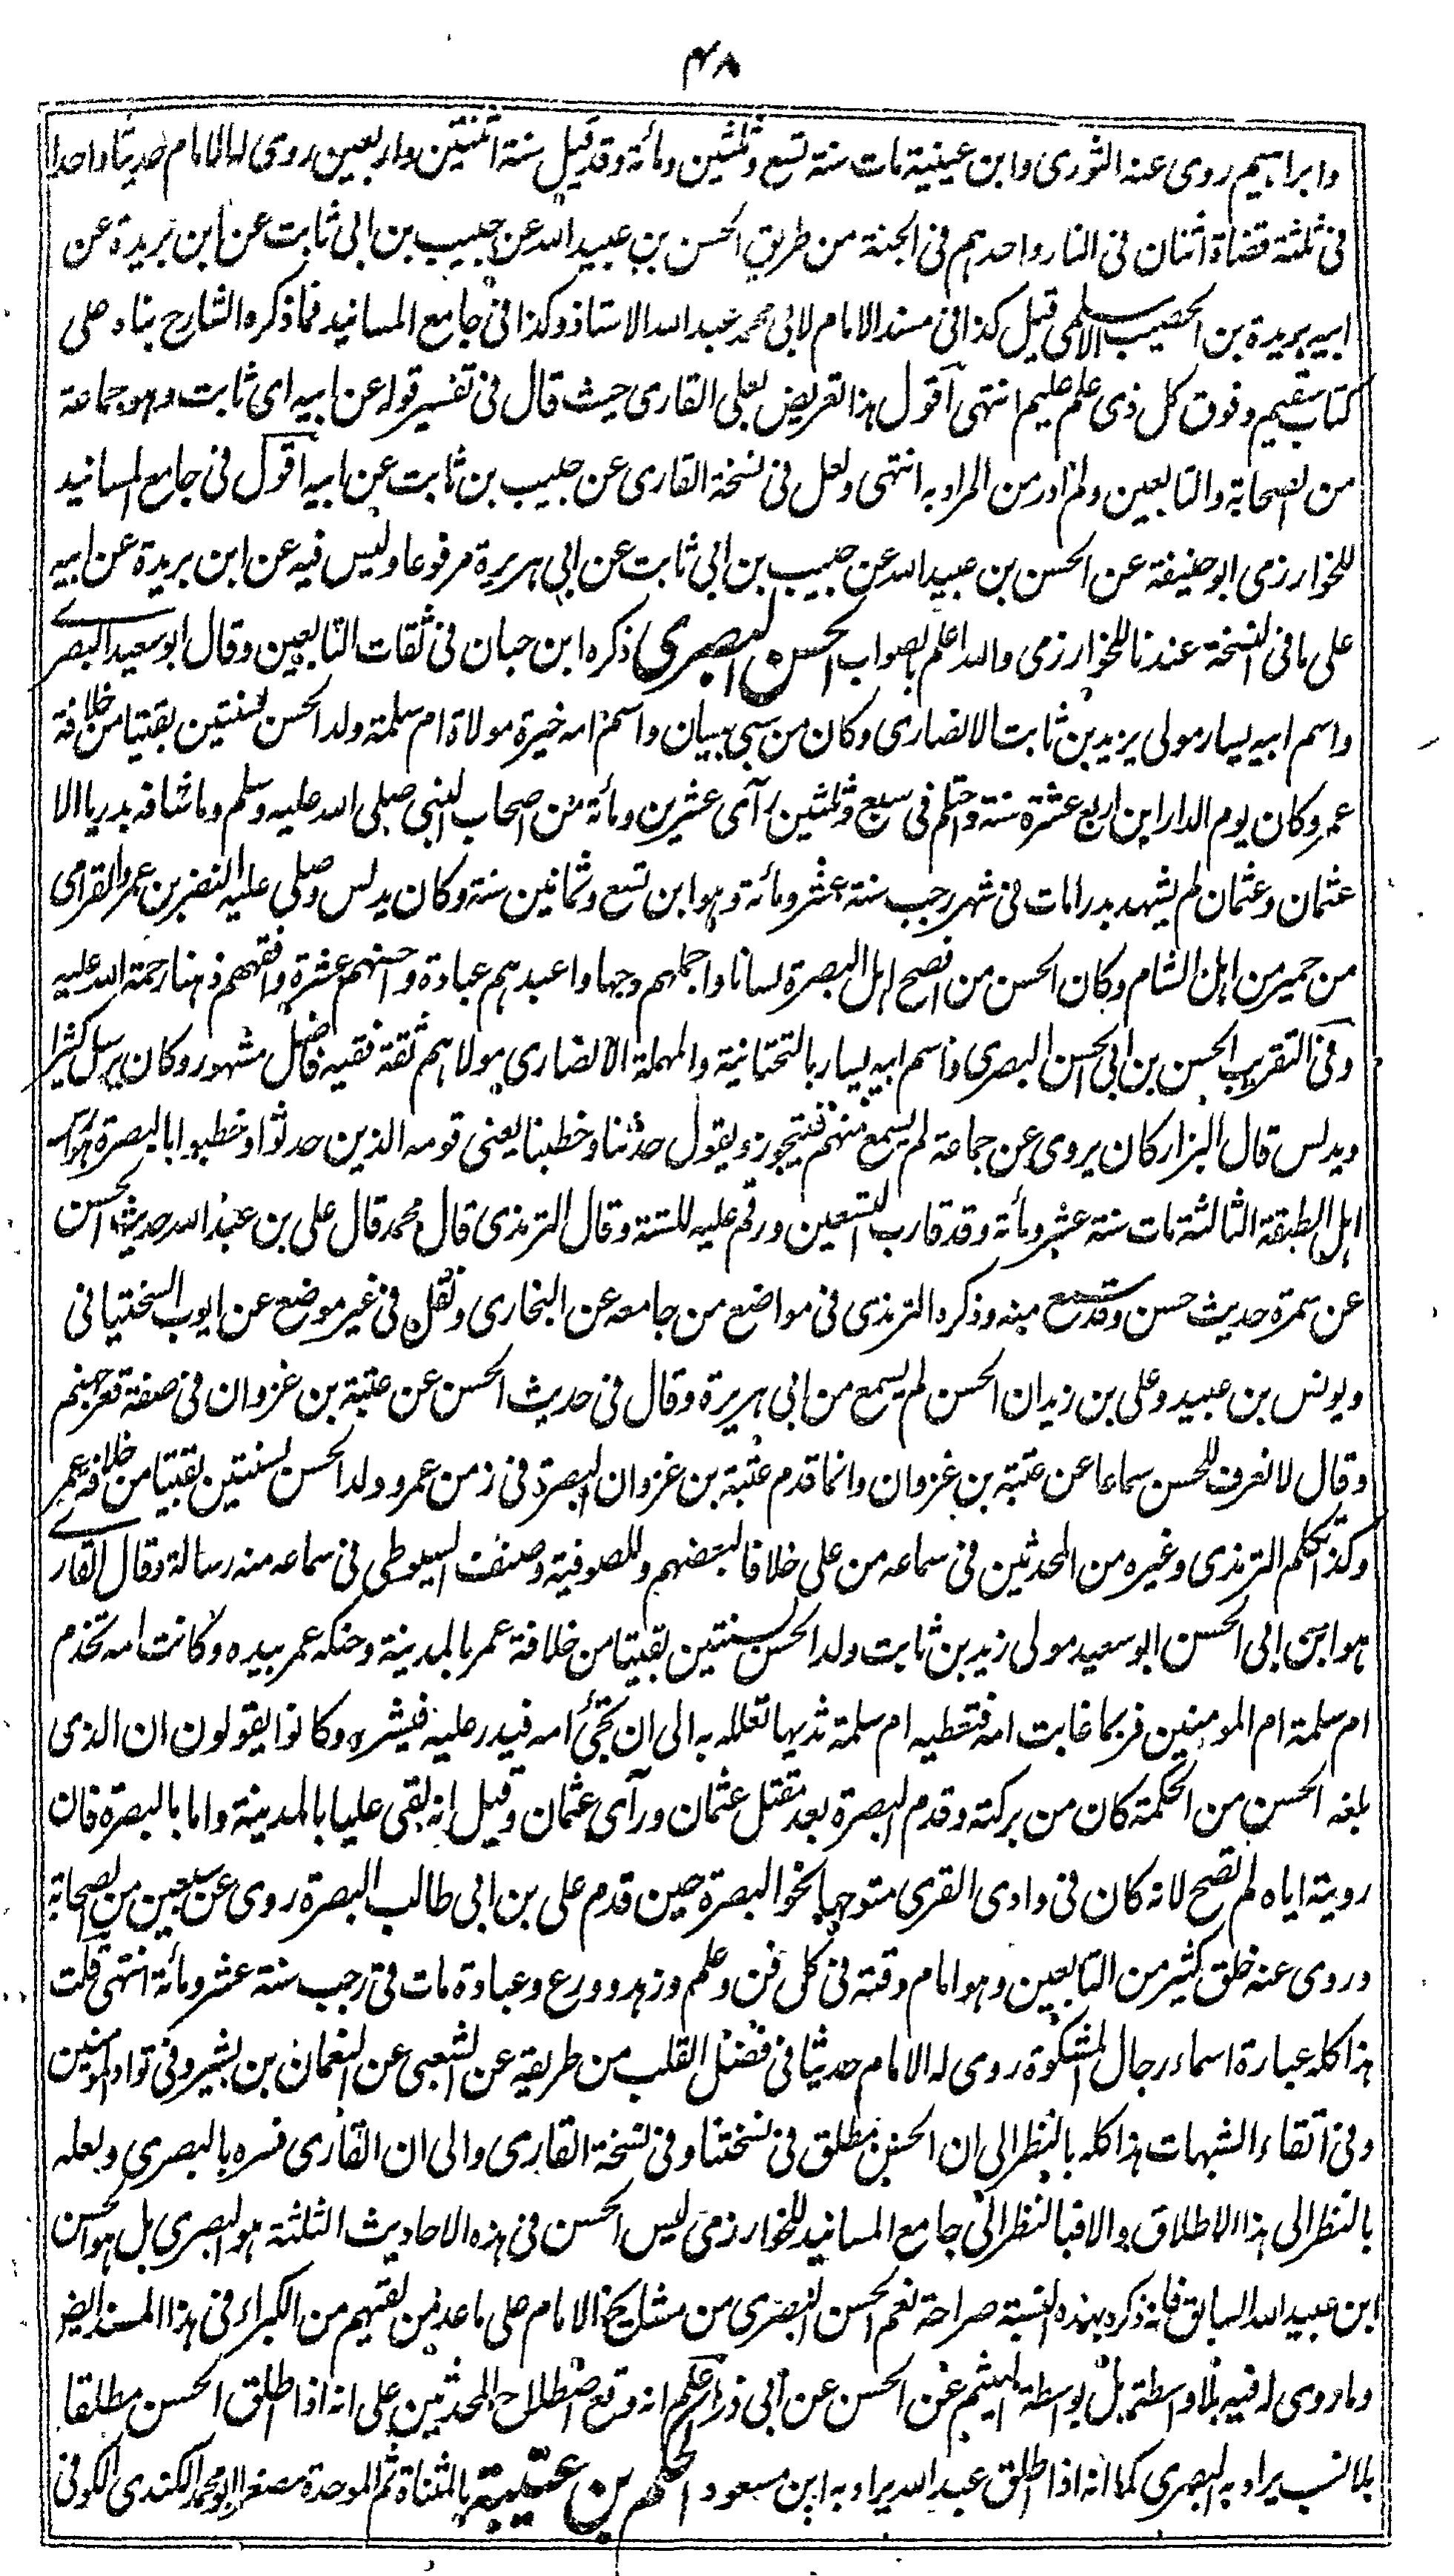 ٤٨
وابراہیم روی عنہ الثوری وابن عیینۃ مات سنۃ تسع وثلثین ومائۃ وقد قیل سنۃ اثنتین واربعین روی لہ الامام حدیثا واحدا
فی ثلثۃ قضاۃ اثنان فی النار واحدہم فی الجنۃ من طریق الحسن بن عبید اللہ عن حبیب بن ابی ثابت عن ابن بریدۃ عن
ابیہ بریدۃ بن الحصیب الاسلمی قیل کذا فی مسند الامام لابی محمد عبد اللہ الاستاذ وکذا فی جامع المسانید فما ذکرہ الشارح بناء علی
کتاب سقیم وفوق کل ذی علم علیم انتہی اقول ہذا تعریض لعلی القاری حیث قال فی تفسیر قولہ عن ابیہ ای ثابت وہو جماعۃ
من الصحابۃ والتابعین ولم ادر من المراد بہ انتہی ولعل فی نسخۃ القاری عن حبیب بن ثابت عن ابیہ اقول فی جامع المسانید
للخوارزمی ابو حنیفۃ عن الحسن بن عبید اللہ عن حبیب بن ابی ثابت عن ابی ہریرۃ مرفوعا ولیس فیہ عن ابن بریدۃ عن ابیہ
علی ما فی النسخۃ عندنا للخوارزمی واللہ اعلم بالصواب الحسن البصری ذکرہ ابن حبان فی ثقات التابعین وقال ابو سعید البصری
واسم ابیہ یسار مولی یزید بن ثابت الانصاری وکان من سبی بیسان واسم امہ خیرۃ مولاۃ ام سلمۃ ولد الحسن لسنتین بقیتا من خلافۃ
عمر وکان یوم الدار ابن اربع عشرۃ سنۃ واحتلم فی سبع وثلثین رآی عشرین ومائۃ من اصحاب النبی صلی اللہ علیہ وسلم وما شافہ بدریا الا
عثمان وعثمان لم یشہد بدرا مات فی شہر رجب سنۃ عشر ومائۃ وہو ابن تسع وثمانین سنۃ وکان یدلس وصلی علیہ النضر بن عمرو القرامی
من حمیر من اہل الشام وکان الحسن من افصح اہل البصرۃ لسانا واجملہم وجہا واعبدہم عبادۃ واحسنہم عشرۃ وافقہہم ذہنا رحمۃ اللہ علیہ
وفی التقریب الحسن بن ابی الحسن البصری واسم ابیہ یسار بالتحتانیۃ والمہملۃ الانصاری مولاہم ثقۃ فقیہ فاضل مشہور وکان یرسل کثیرا
ویدلس قال البزار کان یروی عن جماعۃ لم یسمع منہم فیتجوز ویقول حدثنا وخطبنا یعنی قومہ الذین حدثوا وخطبوا بالبصرۃ ہو راس
اہل الطبقۃ الثالثۃ مات سنۃ عشر ومائۃ وقد قارب التسعین ورقم علیہ للستۃ وقال الترمذی قال محمد قال علی بن عبد اللہ حدیث الحسن
عن سمرۃ حدیث حسن وقد سمع منہ وذکرہ الترمذی فی مواضع من جامعہ عن البخاری ونقل فی غیر موضع عن ایوب السختیانی
ویونس بن عبید وعلی بن زید ان الحسن لم یسمع من ابی ہریرۃ وقال فی حدیث الحسن عن عتبۃ بن غزوان فی صفۃ قعر جہنم
وقال لا نعرف للحسن سماعا عن عتبۃ بن غزوان وانما قدم عتبۃ بن غزوان البصرۃ فی زمن عمر وولد الحسن لسنتین بقیتا من خلافۃ عمر
وکذا تکلم الترمذی وغیرہ من المحدثین فی سماعہ من علی خلافا لبعضہم وللصوفیۃ وصنف السیوطی فی سماعہ منہ رسالۃ وقال القاری
ہو ابن ابی الحسن ابو سعید مولی زید بن ثابت ولد الحسن لسنتین بقیتا من خلافۃ عمر بالمدینۃ وحنکہ عمر بیدہ وکانت امہ تخدم
ام سلمۃ ام المومنین فربما غابت امہ فتعطیہ ام سلمۃ ثدیہا تعللہ بہ الی ان تجئ امہ فیدر علیہ فیشربہ وکانوا یقولون ان الذی
بلغہ الحسن من الحکمۃ کان من برکتہ وقدم البصرۃ بعد مقتل عثمان ورآی عثمان وقیل انہ لقی علیا بالمدینۃ واما بالبصرۃ فان
رویتہ ایاہ لم تصح لانہ کان فی وادی القری متوجہا نحو البصرۃ حین قدم علی بن ابی طالب البصرۃ روی عن سبعین من الصحابۃ
وروی عنہ خلق کثیر من التابعین وہو امام وقتہ فی کل فن وعلم وزہد وورع وعبادۃ مات فی رجب سنۃ عشر ومائۃ انتہی قلت
ہذا کلہ عبارۃ اسماء رجال المشکوۃ روی لہ الامام حدیثا فی فضل القلب من طریقہ عن الشعبی عن النعمان بن بشیر وفی تواد المومنین
وفی اتقاء الشبہات ہذا کلہ بالنظر الی ان الحسن مطلق فی نسختنا وفی نسخۃ القاری والی ان القاری فسرہ بالبصری ولعلہ
بالنظر الی ہذا الاطلاق والا فبالنظر الی جامع المسانید للخوارزمی لیس الحسن فی ہذہ الاحادیث الثلثۃ ہو البصری بل ہو الحسن
ابن عبید اللہ السابق فانہ ذکرہ بہذہ النسبۃ صراحۃ نعم الحسن البصری من مشایخ الامام علی ما عد من لقیہم من الکبراء فی ہذا المسند ایضا
وما روی لہ فیہ بلا واسطۃ بل بواسطۃ الہیثم عن الحسن عن ابی ذر اعلم انہ وقع اصطلاح المحدثین علی انہ اذا اطلق الحسن مطلقا
بلا نسب یراد بہ البصری کما انہ اذا اطلق عبد اللہ یراد بہ ابن مسعود الحکم بن عتیبۃ بالمثناۃ ثم الموحدۃ مصغرا ابو محمد الکندی الکوفی